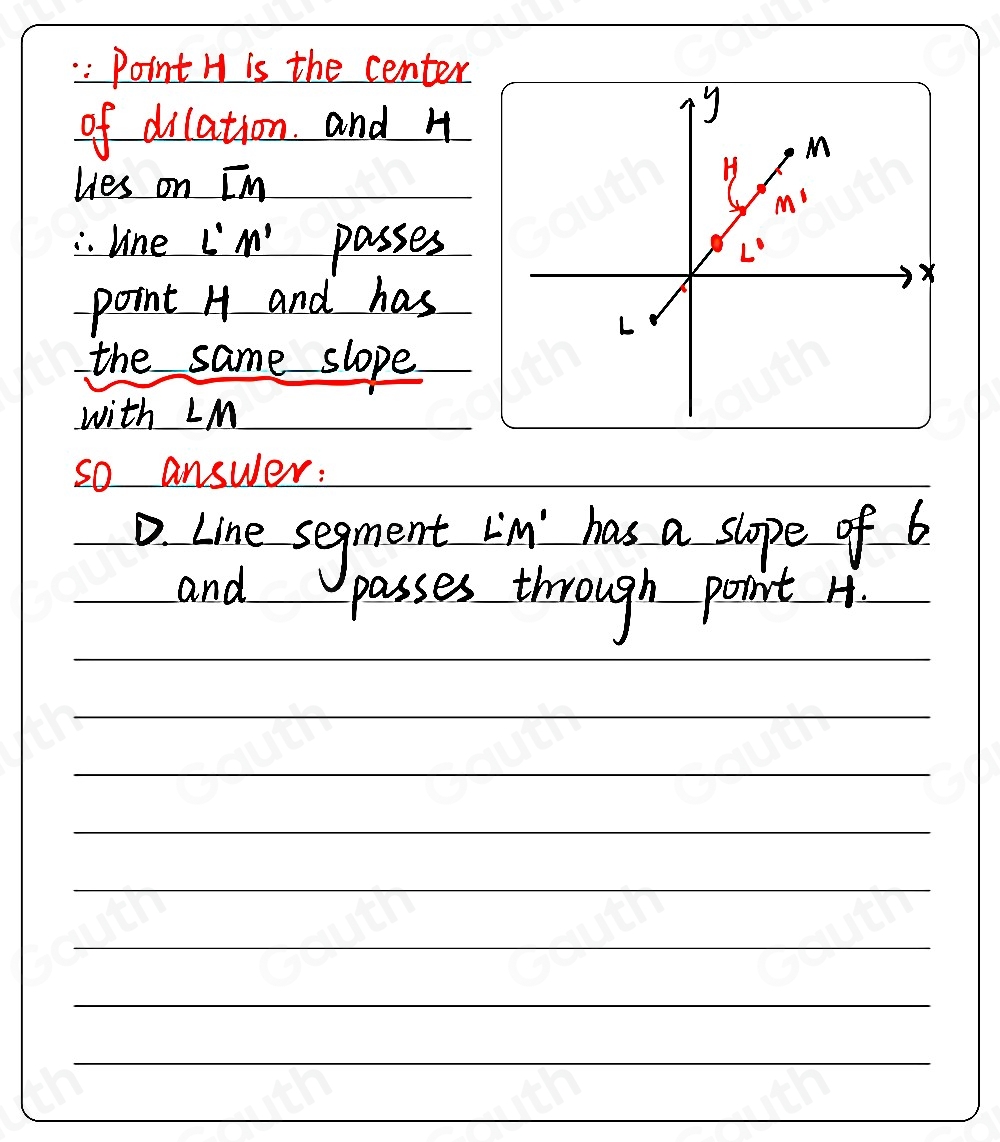 ∵ Point H is the center
of dilation. and H
lies on L̅M̅
∴ line L'M' passes
point H and has
the same slope
with LM
y
M
H
M'
L'
x
L
so answer:
D. Line segment L'M' has a slope of 6
and passes through point H.